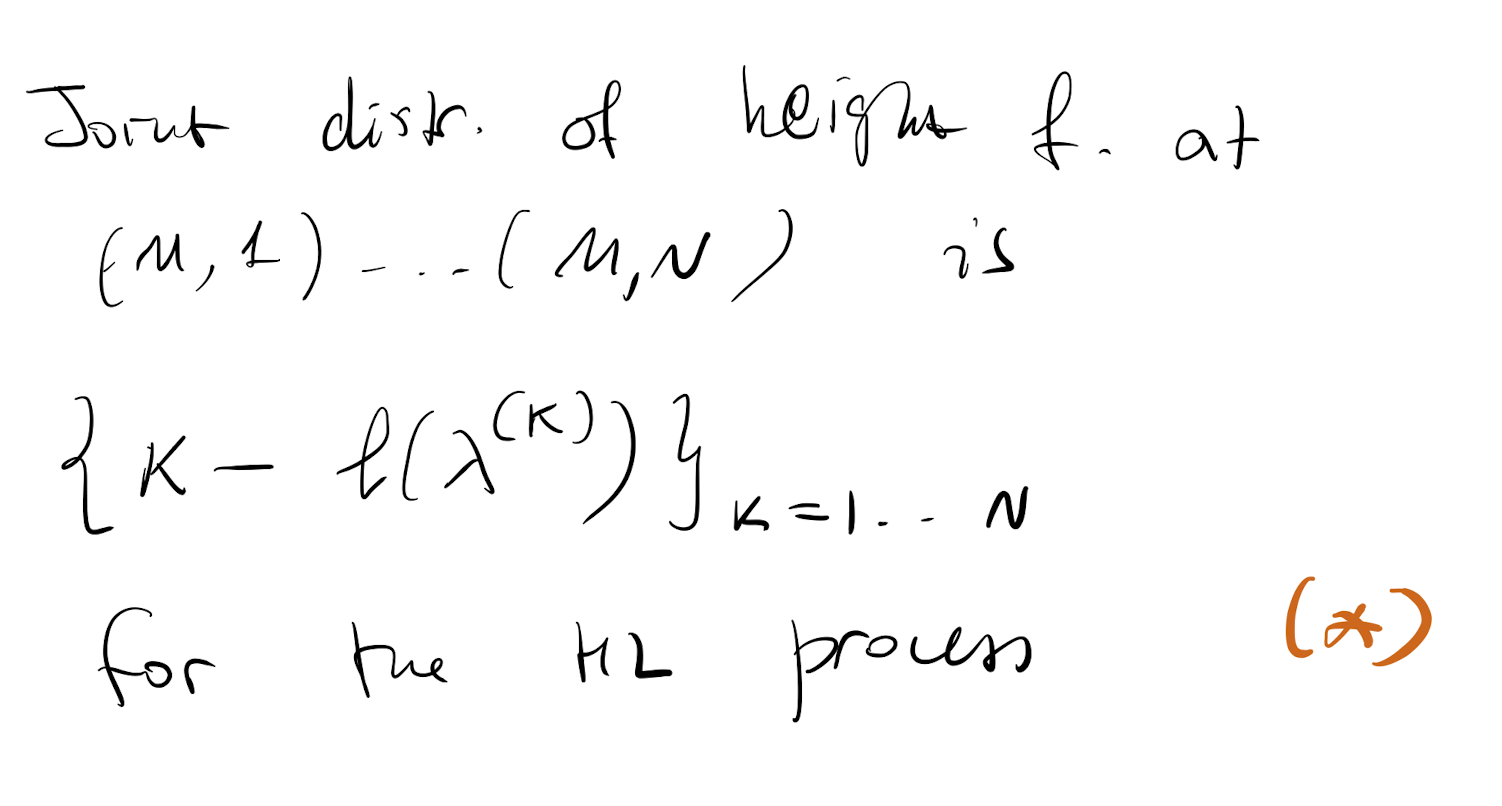 Joint distr. of height f. at
(M, 1) - ... (M, N) is
{K - ℓ(λ^(K))}_{K=1... N}
for the HL process (*)